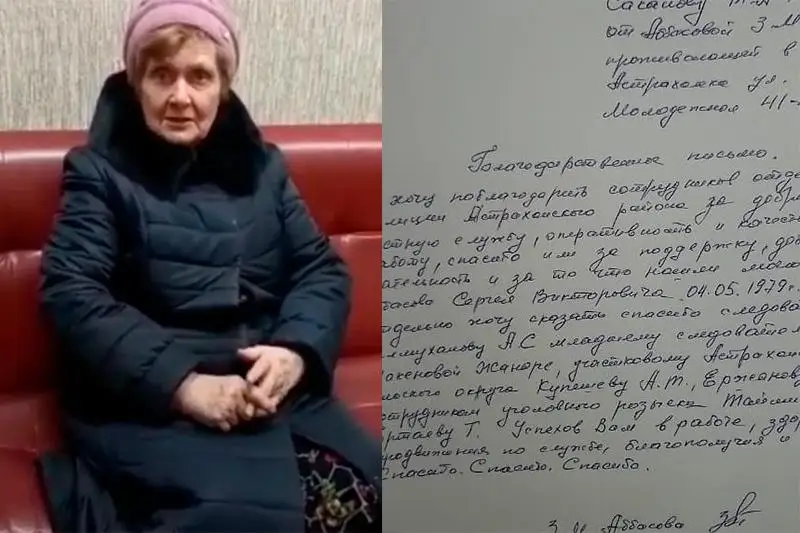 Сакаловy Т.А
от Аббасовой З М
проживающей в
Астраханка ул.
Молодежная 41-
Благодарственное письмо.
хочу поблагодарить сотрудников отде
лиции Астраханского района за добр
струю службу, оперативность и качеств
работу, спасибо им за поддержку, доб
ательность и за то что нашли моего
басова Сергея Викторовича 04.05.1979г.
тдельно хочу сказать спасибо следова
ммуханову А.С младшему следовател
акеновой Жанаре, участковому Астрахан
льского округа Купешеву А.Т., Ержанову
отрудникам уголовного розыска
ртаеву Т. Успехов Вам в работе, здор
родвижения по службе, благополучия и
Спасибо. Спасибо. Спасибо.
З М Аббасова